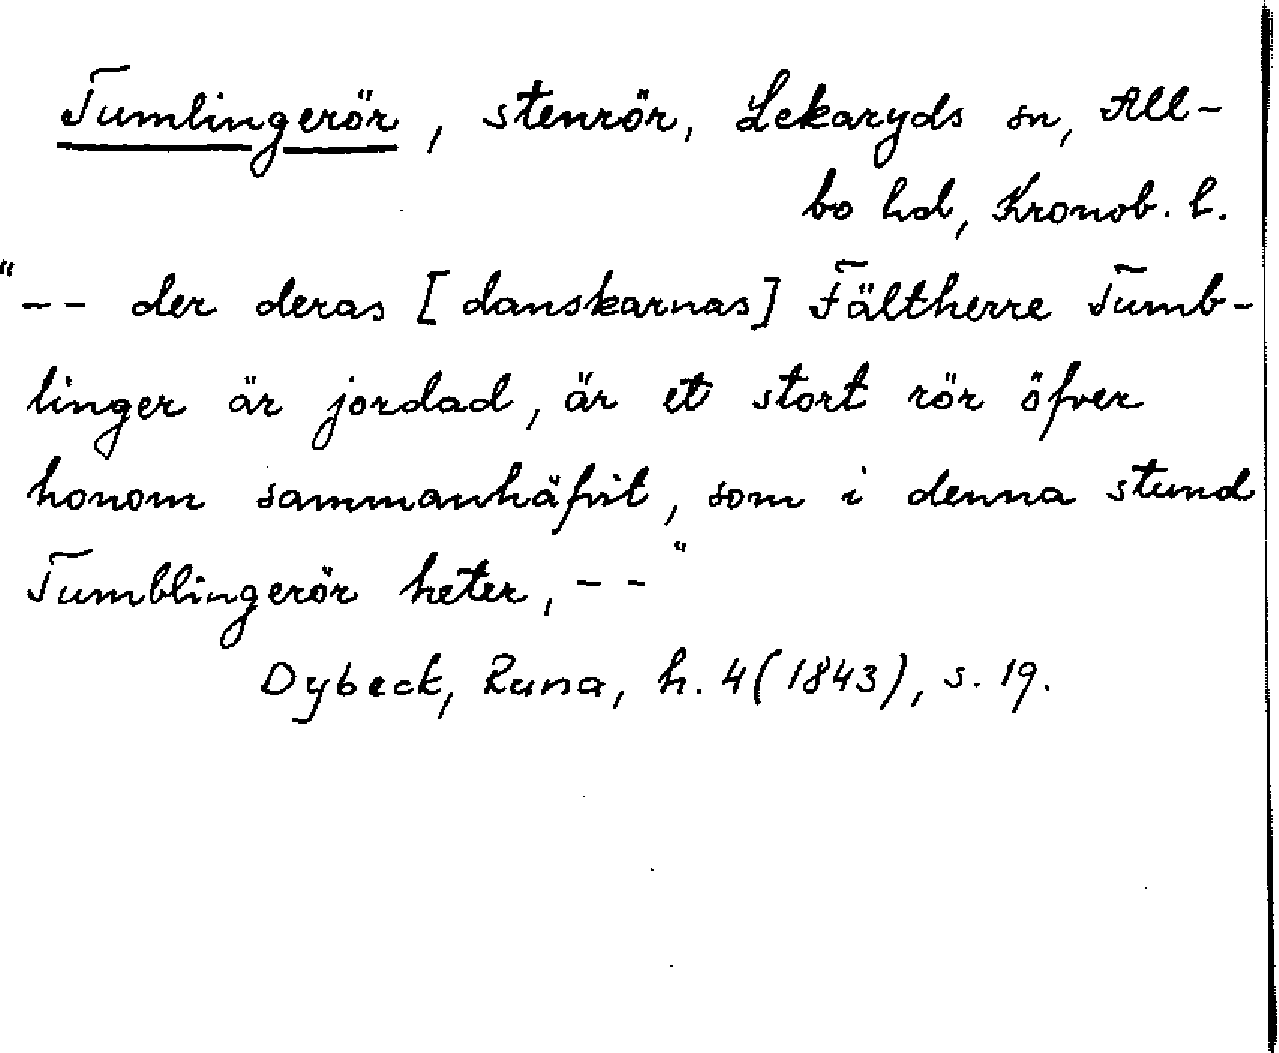 Tumlingerör, stenrör, Lekaryds sn, All-
bo hd, Kronob. l.
"-- der deras [danskarnas] Fältherre Tumb-
linger är jordad, är et stort rör öfver
honom sammanhäfvit, som i denna stund
Tumblingerör heter, --"
Dybeck, Runa, h. 4 (1843), s. 19.